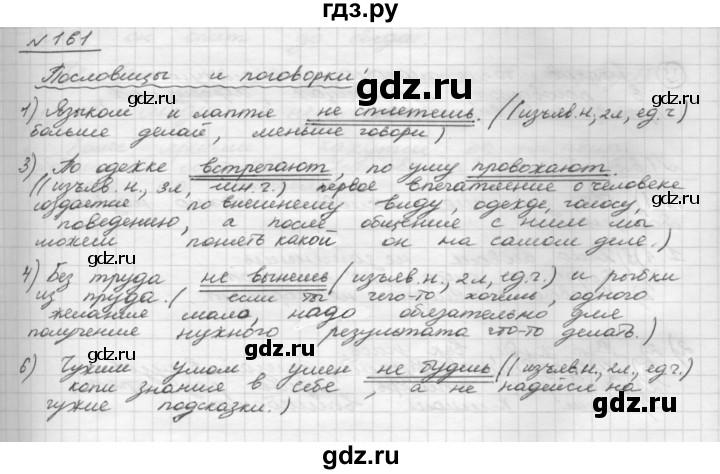 гдз.ру
№161
Пословицы и поговорки:
1) Языком и лаптя не сплетешь. ((изъяв.н., 2л, ед.ч.)
больше делай, меньше говори)
3) По одежке встречают, по уму провожают.
((изъяв. н., 3л, мн.ч.) первое впечатление о человеке
создается по внешнему виду, одежде, голосу,
поведению, а после общения с ним мы
можем понять какой он на самом деле.)
4) Без труда не вынешь (изъяв.н., 2л, ед.ч.) и рыбки
из пруда. (если ты чего-то хочешь, одного
желания мало, надо обязательно для
получения нужного результата что-то делать.)
6) Чужим умом умен не будешь ((изъяв.н., 2л., ед.ч.)
копи знания в себе, а не надейся на
чужие подсказки.)
gdz.ru
gdz.ru
gdz.ru
gdz.ru
gdz.ru
gdz.ru
gdz.ru
gdz.ru